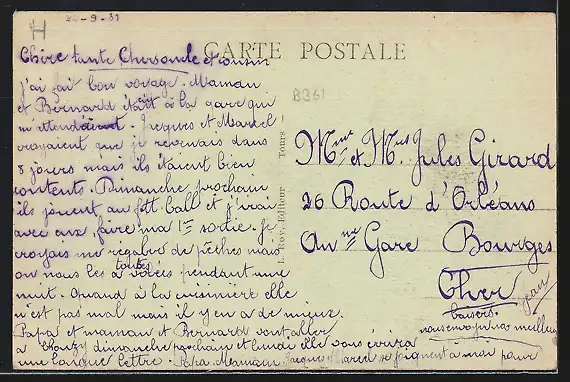 20-9-31
H
CARTE POSTALE
Chère tante Chersonde et cousin
J'ai fait bon voyage. Maman
et Bernard était à la gare qui
m'attendaient. Jacques et Marcel
croyaient que je revenais dans
8 jours mais ils étaient bien
contents. Dimanche prochain
ils jouent au foot ball et j'irai
avec eux, faire ma 1re sortie. Je
croyais me régaler de pêches mais
on nous les a toutes volées pendant une
nuit. Quand à la cuisinière elle
n'est pas mal mais il y en a de mieux.
Papa et maman et Bernard vont aller
à Chouzy dimanche prochain et lundi elle vous écrira
une longue lettre. Papa Maman Jacques Marcel se joignent à moi pour
vous envoyer nos meilleurs
baisers.
Jean
B361
L. Roy, Editeur Tours
Mme et Mr Jules Girard
26 Route d'Orléans
Anne Gare Bourges
Cher